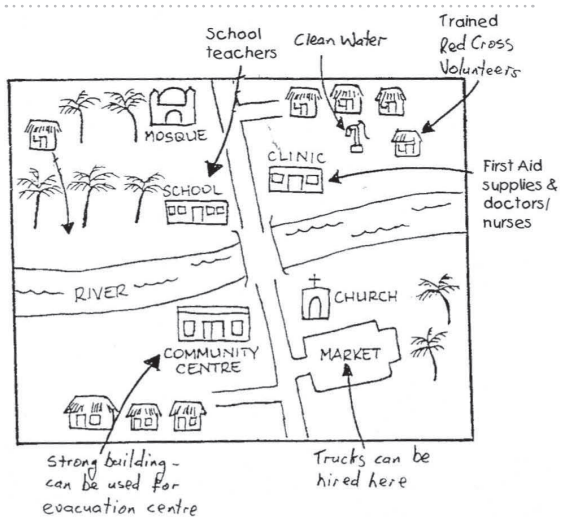 School
teachers
Clean Water
Trained
Red Cross
Volunteers
MOSQUE
SCHOOL
CLINIC
First Aid
supplies &
doctors/
nurses
RIVER
CHURCH
COMMUNITY
CENTRE
MARKET
Strong building -
can be used for
evacuation centre
Trucks can be
hired here